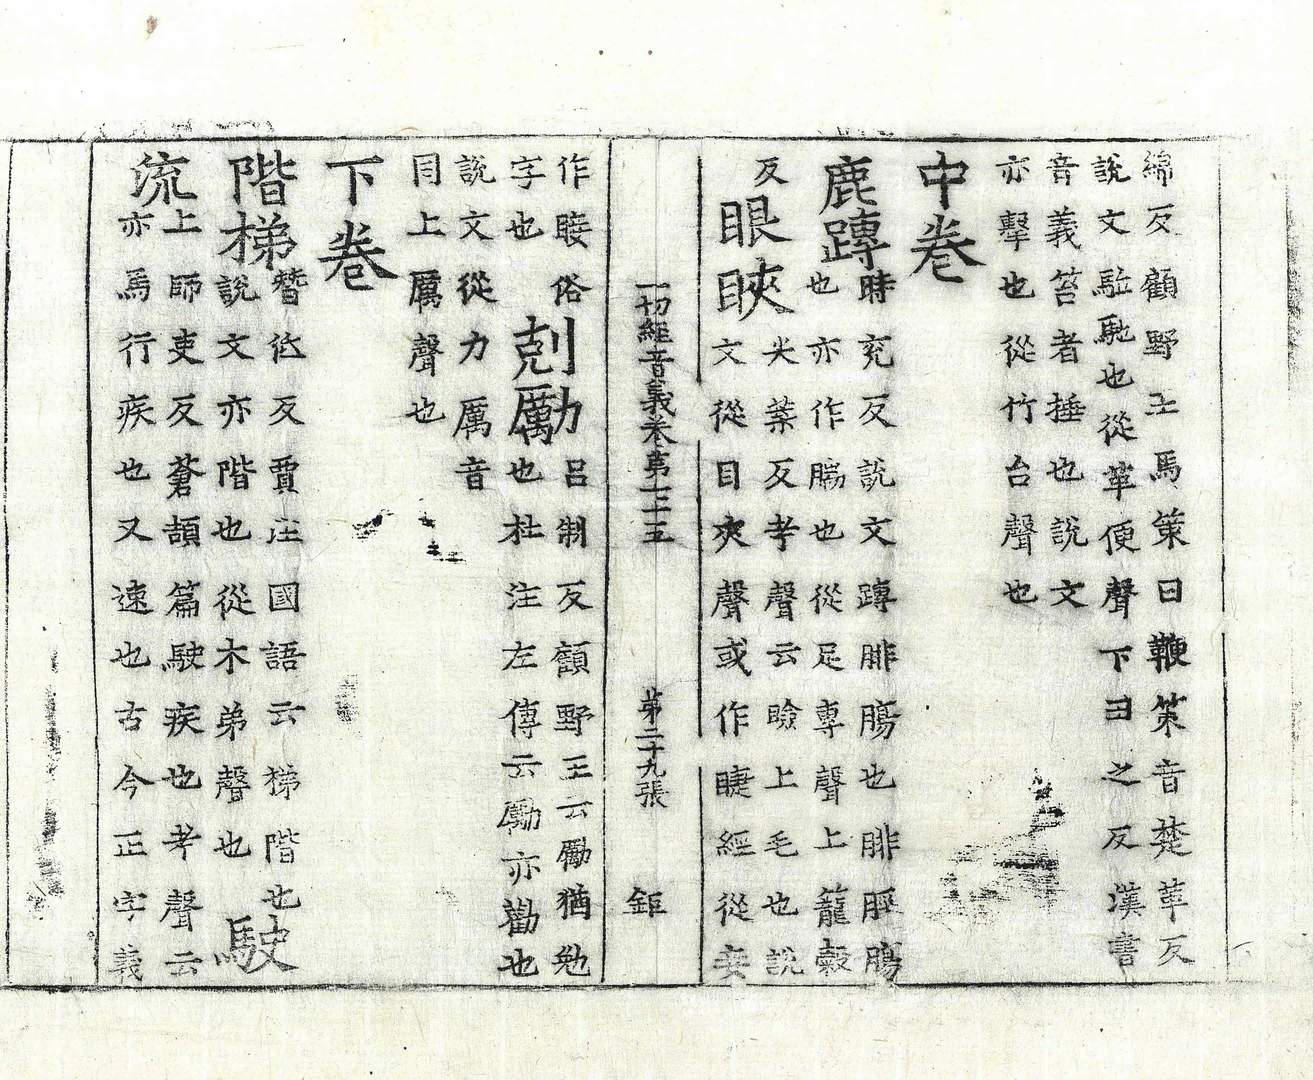 綿反顧野王馬策曰鞭策音楚革反
說文駈馳也從革便聲下丑之反漢書
音義笞者捶也說文
亦擊也從竹台聲也
中卷
鹿蹲
時兖反說文蹲腓腸也腓脛腸
也亦作腨也從足專聲上籠穀
反
眼䀹
尖葉反考聲云瞼上毛也說
文從目夾聲或作睫經從妾
一切經音義卷第七十五 第二十九張 鉅
作䀹俗
字也
剋勵
呂制反顧野王云勵猶勉
也杜注左傳云勵亦勸也
說文從力厲音
同上厲聲也
下卷
階梯
替低反賈注國語云梯階也
說文亦階也從木弟聲也
駛
流
上師吏反蒼頡篇駛疾也考聲云
亦馬行疾也又速也古今正字義